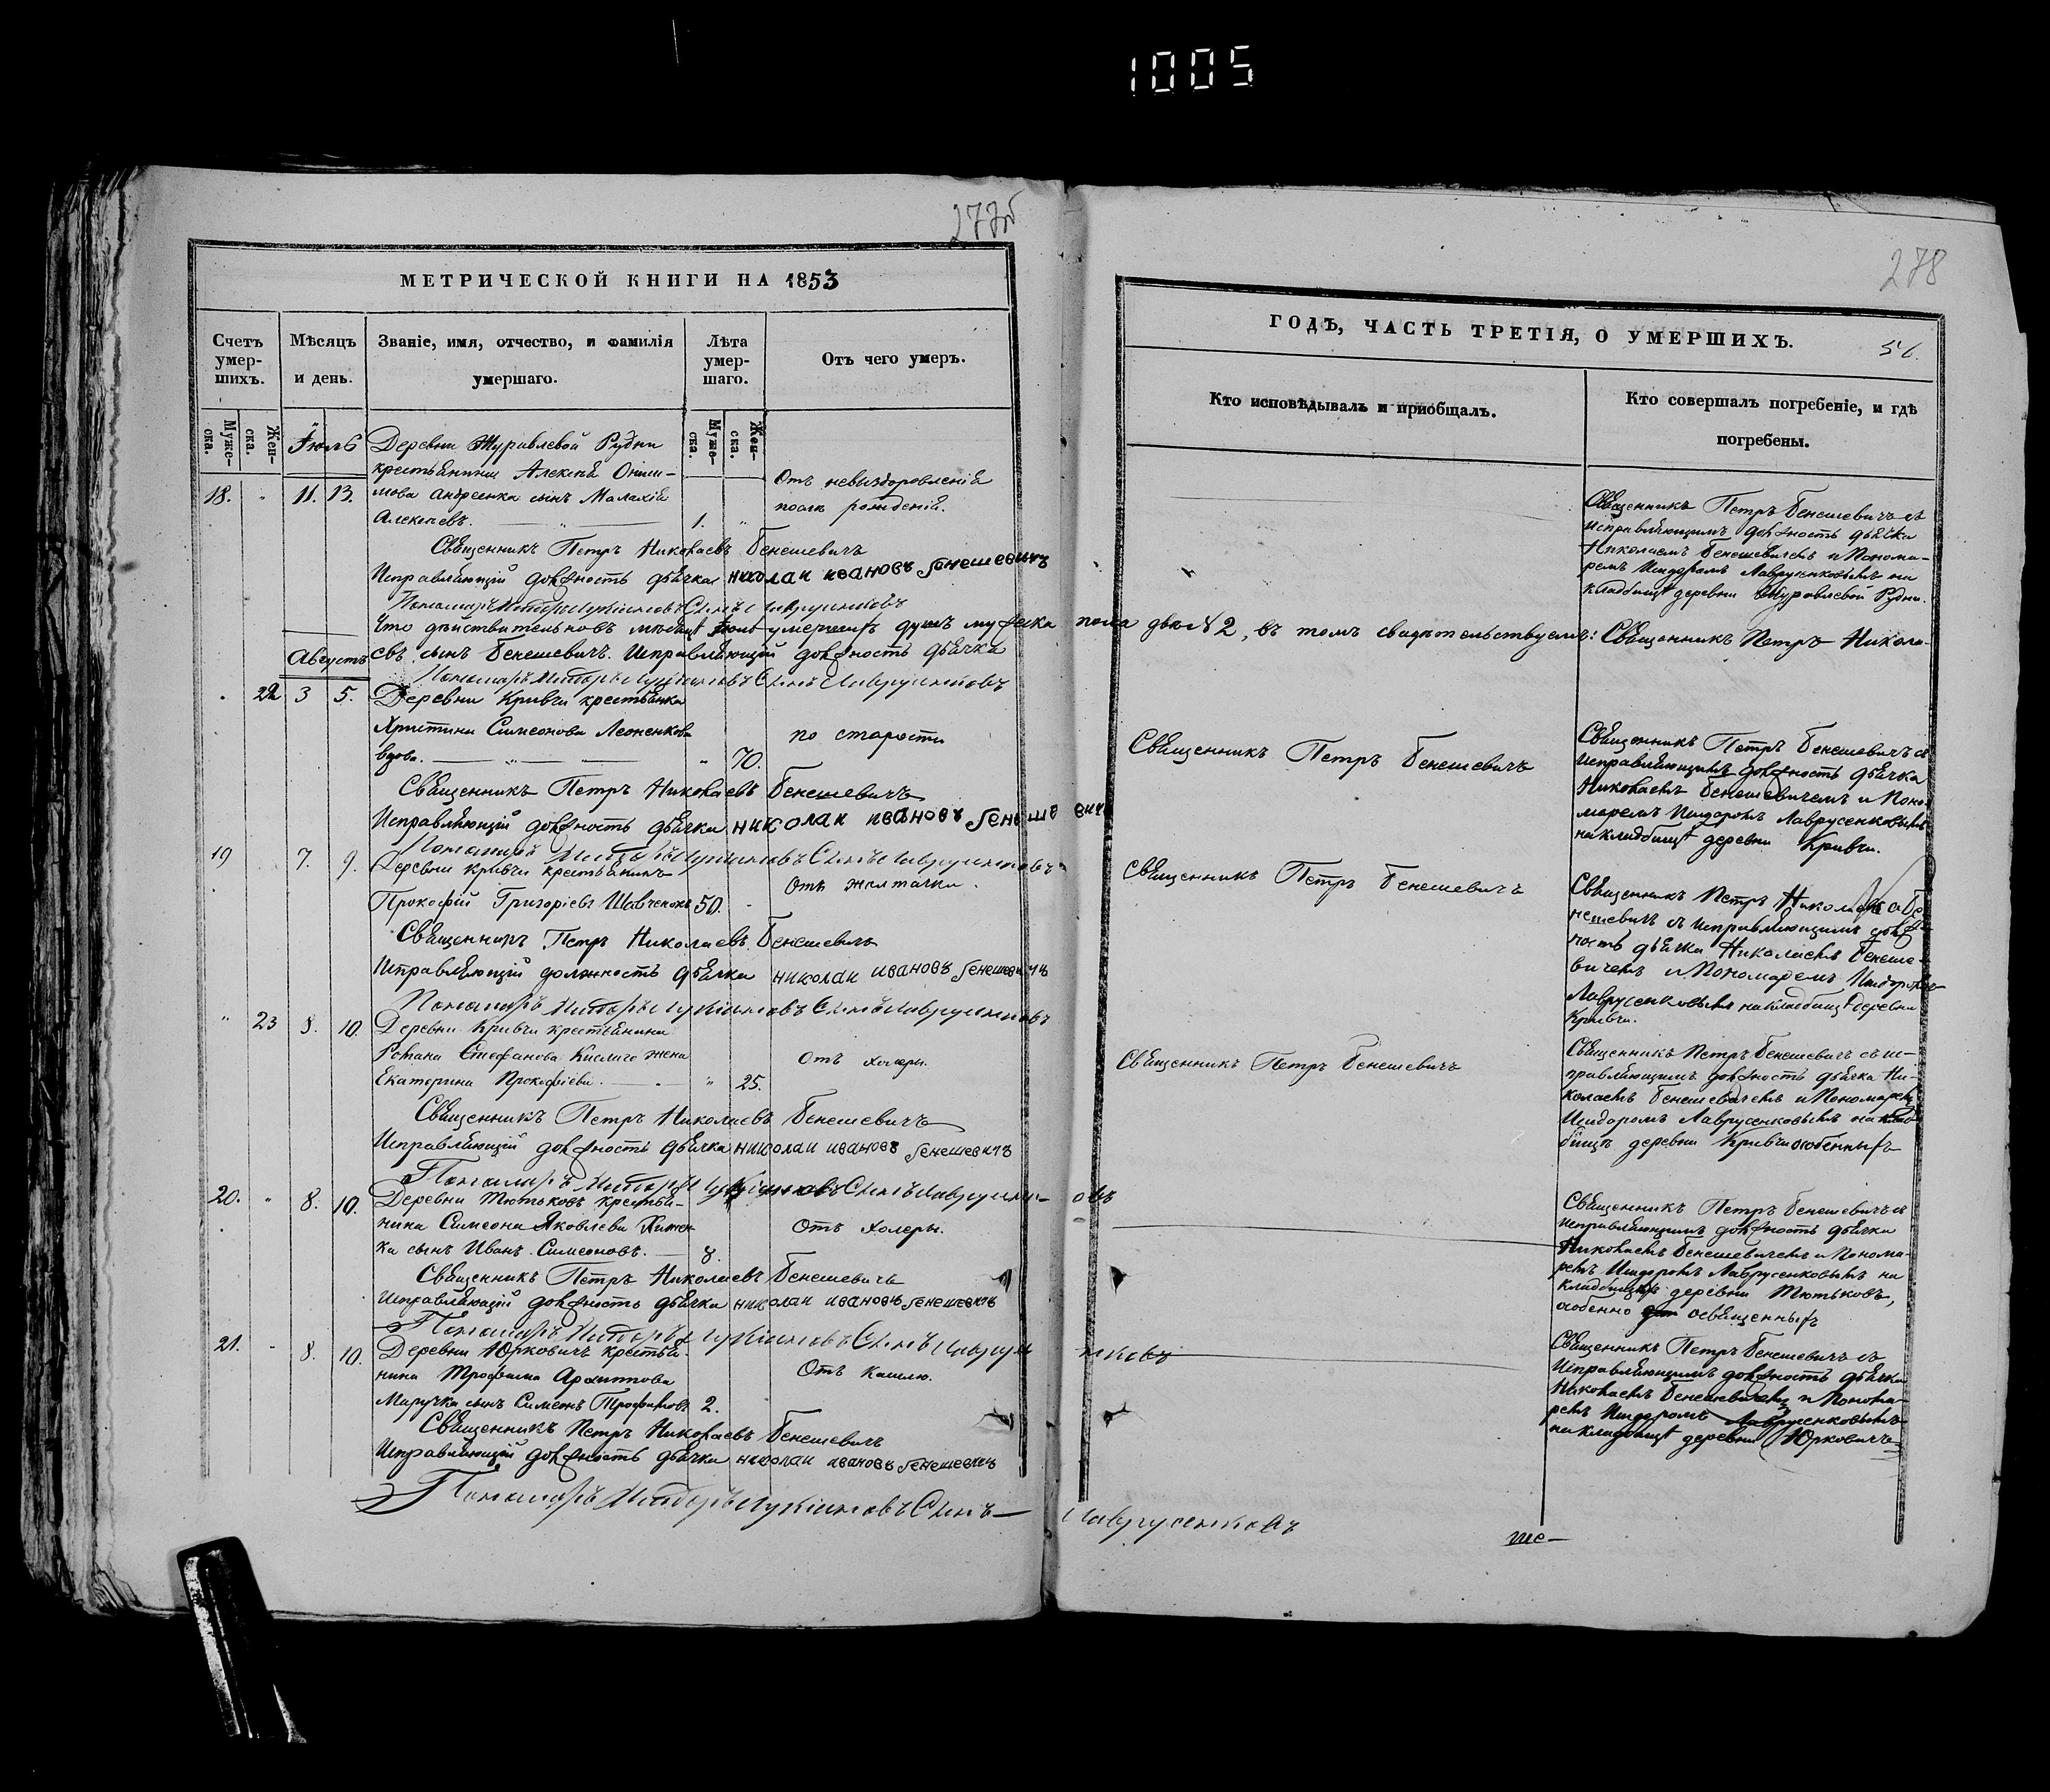 1005
277об
278
МЕТРИЧЕСКОЙ КНИГИ НА 1853
Счетъ умер-шихъ.
Мѣсяцъ и день.
Званіе, имя, отчество, и фамилія умершаго.
Лѣта умер-шаго.
Отъ чего умеръ.
Муже-ска.
Жен-ска.
Муже-ска.
Жен-ска.
Іюль
Деревни Журавлевой Рудни
крестьянина Алексѣя Ониси-
18. " 11. 13. мова Андреенка сынъ Малахій
Алексѣевъ. 1. "
Отъ невыздоровленія
послѣ рожденія.
Священникъ Петръ Николаевъ Бенешевичъ
Исправляющій должность дьячка николаи ивановъ бенешевичъ
Пономарь
Что дѣйствительно въ мѣсяцѣ Іюль умершихъ душъ мужеска пола двѣ № 2, въ томъ свидѣтельствуемъ: Священникъ Петръ Никола-
Августъ
евъ сынъ Бенешевичъ. Исправляющій должность дьячка
Пономарь
" 22 3 5. Деревни Кривчи крестьянка
Христина Симеонова Леоненкова
вдова. " 70.
по старости
Священникъ Петръ Николаевъ Бенешевичъ
Исправляющій должность дьячка николаи ивановъ бенешевичъ
Пономарь
19 7. 9. Деревни Кривчи крестьянинъ
Прокофій Григоріевъ Шевченокъ 50. "
Отъ желтачки.
Священникъ Петръ Николаевъ Бенешевичъ
Исправляющій должность дьячка николаи ивановъ бенешевичъ
Пономарь
" 23 8. 10. Деревни Кривчи крестьянина
Романа Стефанова Кислаго жена
Екатерина Прокофіева. " 25.
Отъ холеры.
Священникъ Петръ Николаевъ Бенешевичъ
Исправляющій должность дьячка николаи ивановъ бенешевичъ
Пономарь
20. " 8. 10. Деревни Тютьковъ крестья-
нина Симеона Яковлева
ка сынъ Иванъ Симеоновъ. 8.
Отъ холеры.
Священникъ Петръ Николаевъ Бенешевичъ
Исправляющій должность дьячка николаи ивановъ бенешевичъ
Пономарь
21. " 8. 10. Деревни Юрковичъ крестья-
нина Трофима Архиппова
Маручка сынъ Симеонъ Трофимовъ 2.
Отъ кашлю.
Священникъ Петръ Николаевъ Бенешевичъ
Исправляющій должность дьячка николаи ивановъ бенешевичъ
Пономарь Сынъ Лаврусенковъ
ГОДЪ, ЧАСТЬ ТРЕТІЯ, О УМЕРШИХЪ.
Кто исповѣдывалъ и пріобщалъ.
Кто совершалъ погребеніе, и гдѣ погребены.
Священникъ Петръ Бенешевичъ съ
исправляющимъ должность дьячка
Николаемъ Бенешевичемъ и Понома-
ремъ Исидоромъ Лаврусенковымъ на
кладбищѣ деревни Журавлевой Рудни.
Священникъ Петръ Бенешевичъ
Священникъ Петръ Бенешевичъ съ
исправляющимъ должность дьячка
Николаемъ Бенешевичемъ и Поно-
маремъ Исидоромъ Лаврусенковымъ
на кладбищѣ деревни Кривчи.
Священникъ Петръ Бенешевичъ
Священникъ Петръ Николаевъ Бе-
нешевичъ съ исправляющимъ долж-
ность дьячка Николаемъ Бенеше-
вичемъ и Пономаремъ Исидоромъ
Лаврусенковымъ на кладбищѣ деревни
Кривчи.
Священникъ Петръ Бенешевичъ
Священникъ Петръ Бенешевичъ съ ис-
правляющимъ должность дьячка Ни-
колаемъ Бенешевичемъ и Пономаремъ
Исидоромъ Лаврусенковымъ на клад-
бищѣ деревни Кривчи
Священникъ Петръ Бенешевичъ съ
исправляющимъ должность дьячка
Николаемъ Бенешевичемъ и Понома-
ремъ Исидоромъ Лаврусенковымъ на
кладбищѣ деревни Тютьковъ,
особенно освященныхъ
Священникъ Петръ Бенешевичъ съ
исправляющимъ должность дьячка
Николаемъ Бенешевичемъ и Понома-
ремъ Исидоромъ Лаврусенковымъ
на кладбищѣ деревни Юрковичъ